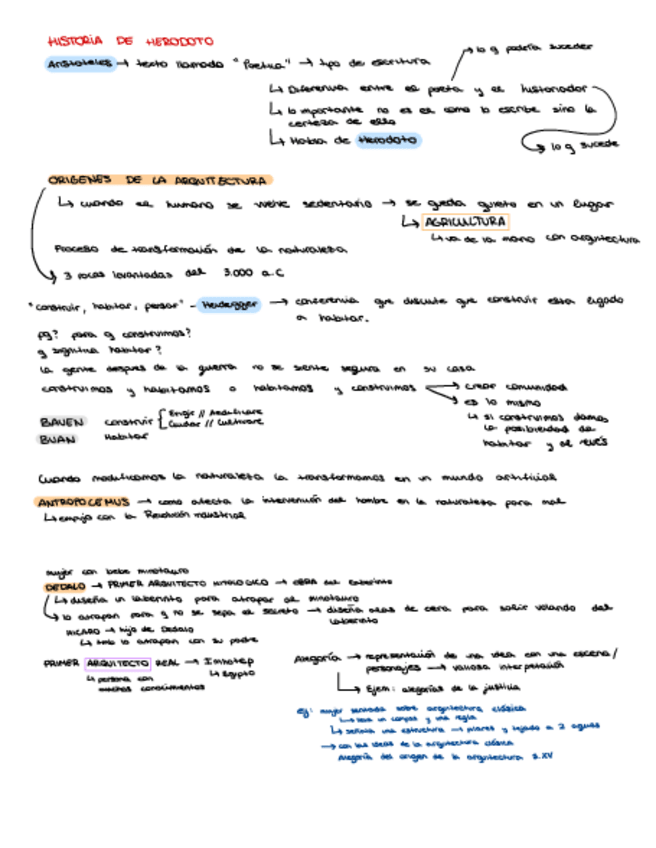 HISTORIA DE HERODOTO
Aristoteles → texto llamado "Poetica" → tipo de escritura
→ lo q podría suceder
↳ Diferencia entre el poeta y el historiador
↳ lo importante no es el como lo escribe sino la
certeza de ello
↳ Habla de Herodoto
→ lo q sucede
ORIGENES DE LA ARQUITECTURA
↳ cuando el humano se vuelve sedentario → se queda quieto en un lugar
↳ AGRICULTURA
↳ va de la mano con arquitectura
Proceso de transformación de la naturaleza
3 rocas levantadas del 3.000 a.C
"construir, habitar, pensar" - Heidegger → conferencia que discute que construir esta ligado
a habitar.
pq? para q construimos?
q significa habitar?
la gente despues de la guerra no se siente segura en su casa
construimos y habitamos o habitamos y construimos → crear comunidad
→ es lo mismo
↳ si construimos damos
la posibilidad de
habitar y al revés
BAUEN construir { Erigir // Aedificare
Cuidar // Cultivare
BUAN Habitar
Cuando modificamos la naturaleza la transformamos en un mundo artificial
ANTROPOCEMUS → como afecta la intervención del hombre en la naturaleza para mal
↳ empezo con la Revolución industrial
mujer con bebe minotauro
DEDALO → PRIMER ARQUITECTO MITOLOGICO → OBRA del laberinto
↳ diseña un laberinto para atrapar al minotauro
↳ lo atrapan para q no se sepa el secreto → diseña alas de cera para salir volando del
laberinto
HICARO → hijo de Dedalo
↳ tmb lo atrapan con su padre
PRIMER ARQUITECTO REAL → Imhotep
↳ Egipto
↳ persona con
muchos conocimientos
Alegoría → representación de una idea con una escena/
personajes → valiosa interpretación
↳ Ejem: alegorías de la justicia
ej: mujer sentada sobre arquitectura clásica
↳ usa un compas y una regla
↳ señala una estructura → pilares y tejado a 2 aguas
→ con las ideas de la arquitectura clásica
Alegoría del origen de la arquitectura S.XV